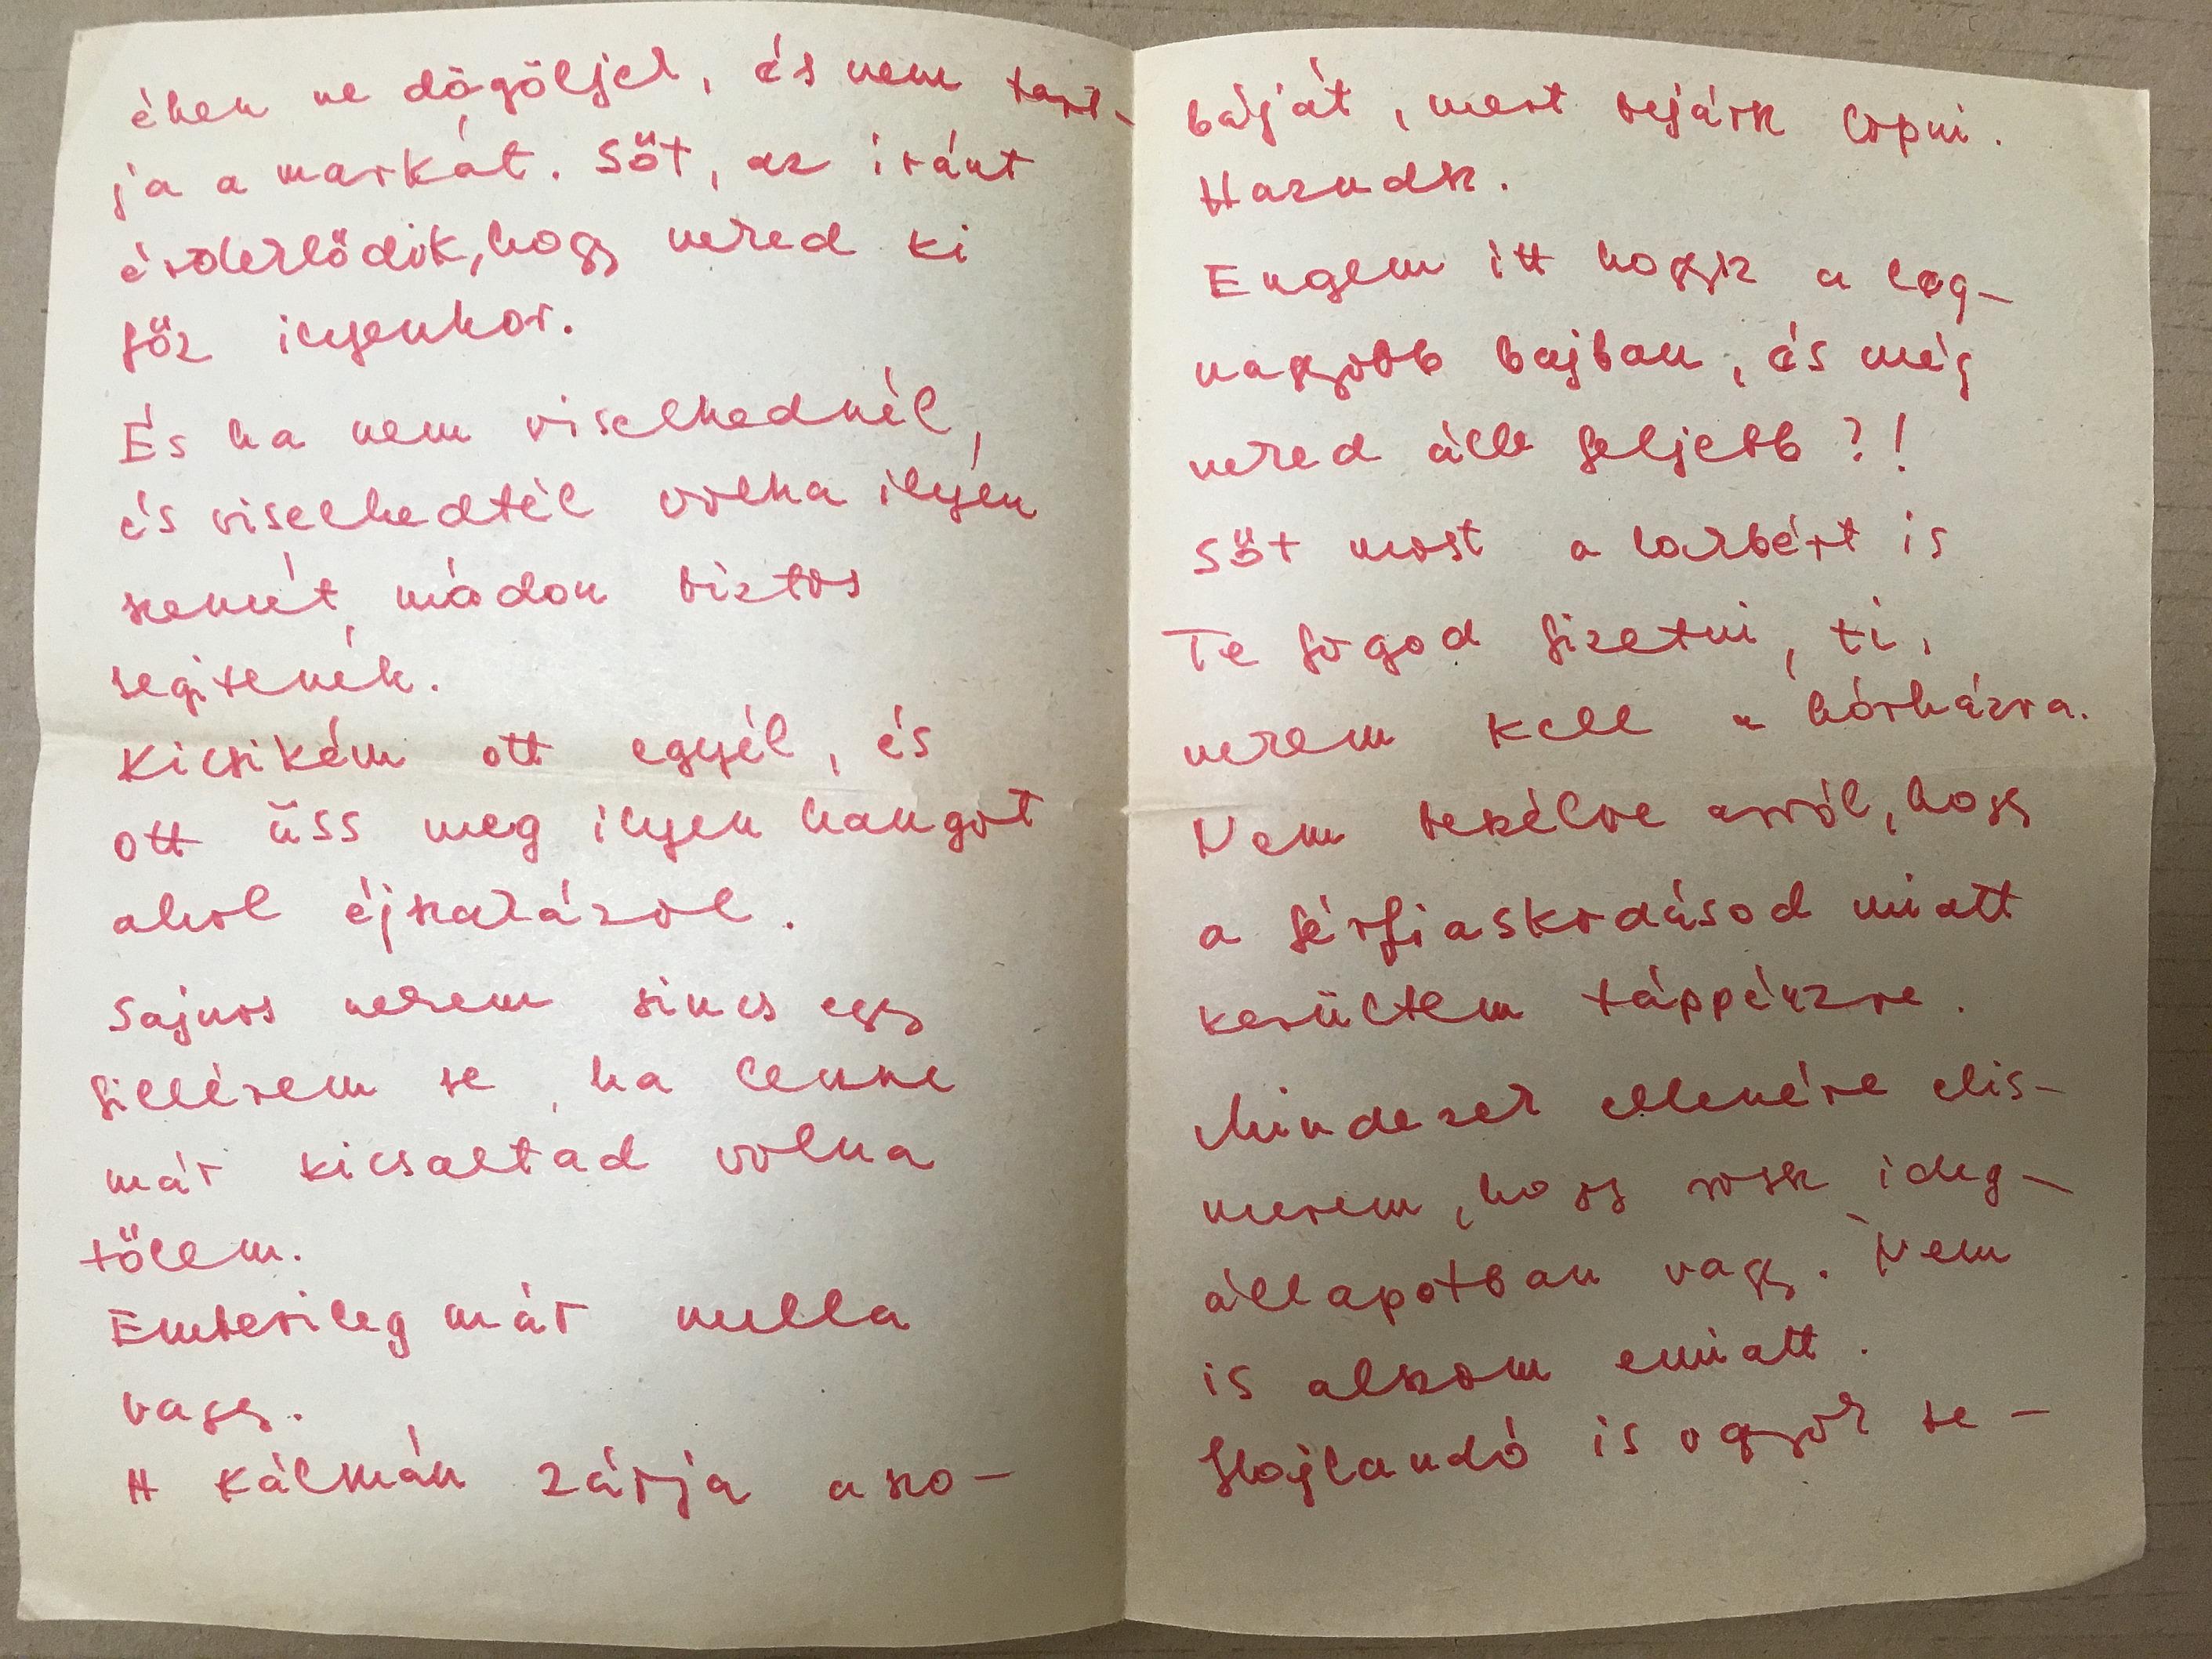 éhen ne dögöljek, és nem tart-
ja a markát. Sőt, az iránt
érdeklődik, hogy neked ki
főz ilyenkor.
És ha nem viselkednél,
és viselkedtél volna ilyen
szemét, módon biztos
segitenék.
Kicsikém ott egyél, és
ott üss meg ilyen hangot
ahol éjszakázol.
Sajnos nekem sincs egy
fillérem se, ha lenne
már kicsaltad volna
tőlem.
Emberileg már nulla
vagy.
A Kálmán zárja a szo-
báját, mert bejársz lopni.
Hazudsz.
Engem itt hagysz a leg-
nagyobb bajban, és még
neked áll feljebb?!
Sőt most a lakbért is
Te fogod fizetni, ti.
nekem kell a kórházra.
Nem beszélve arról, hogy
a férfiaskodásod miatt
kerültem táppénzre.
Mindezek ellenére elis-
merem, hogy rossz ideg-
állapotban vagy. Nem
is alszom emiatt.
Hajlandó is vagyok se-